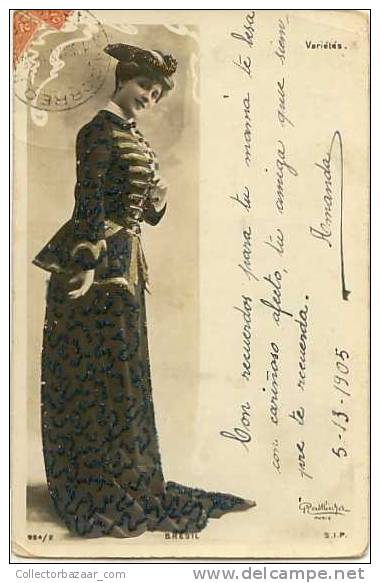 Variétés.
Con recuerdos para tu mamá te besa
con cariñoso afecto, tu amiga que siem-
pre te recuerda.
Amanda
5-13-1905
CORREO
Reutlinger
PARIS
984/2
BRÉSIL
S.I.P.
©Collectorbazar__com / delcampe.net